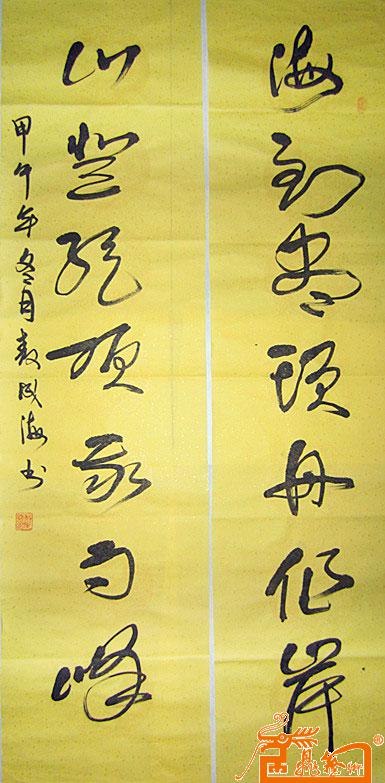 海到尽頭舟作岸
山登绝顶我为峰
甲午年冬月袁成海书